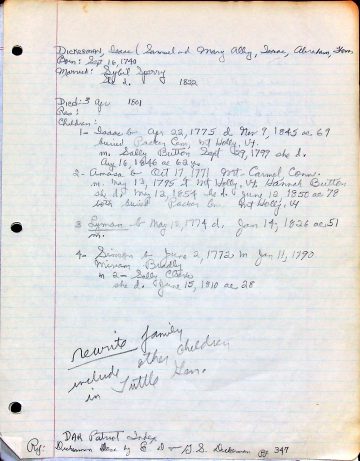 DICKERMAN, Isaac (Samuel and Mary Alling, Isaac, Abraham, Thom
Born: Sept 16, 1740
Married: Sybil Sperry
She d. 1822
Died: 3 Apr 1801
Res:
Children:
1- Isaac b Apr 22, 1775 d Nov 9, 1845 ae 69
buried Packer Cem, Mt Holly, Vt.
m. Sally Button Sept 29, 1799 she d.
Aug 16, 1846 ae 62 yrs
2- Amasa b Oct 17, 1771 Mt. Carmel, Conn.
m. May 13, 1795 Mt Holly, Vt. Hannah Button
she d. May 12, 1854 he d June 12, 1850 ae 78
both buried Packer Cem. Mt Holly, Vt
3 Lyman b May 15, 1774 d. Jan 14, 1826 ae 51
m.
4- Simeon b June 2, 1772 m Jan 11, 1790
Miriam Bradley
m 2- Sally
she d. June 15, 1810 ae 28
rewrite family
include other children
in Tuttle Gen.
DAR Patriot Index
Ref: Dickerman Gene by E D & G. S. Dickerman pg 347